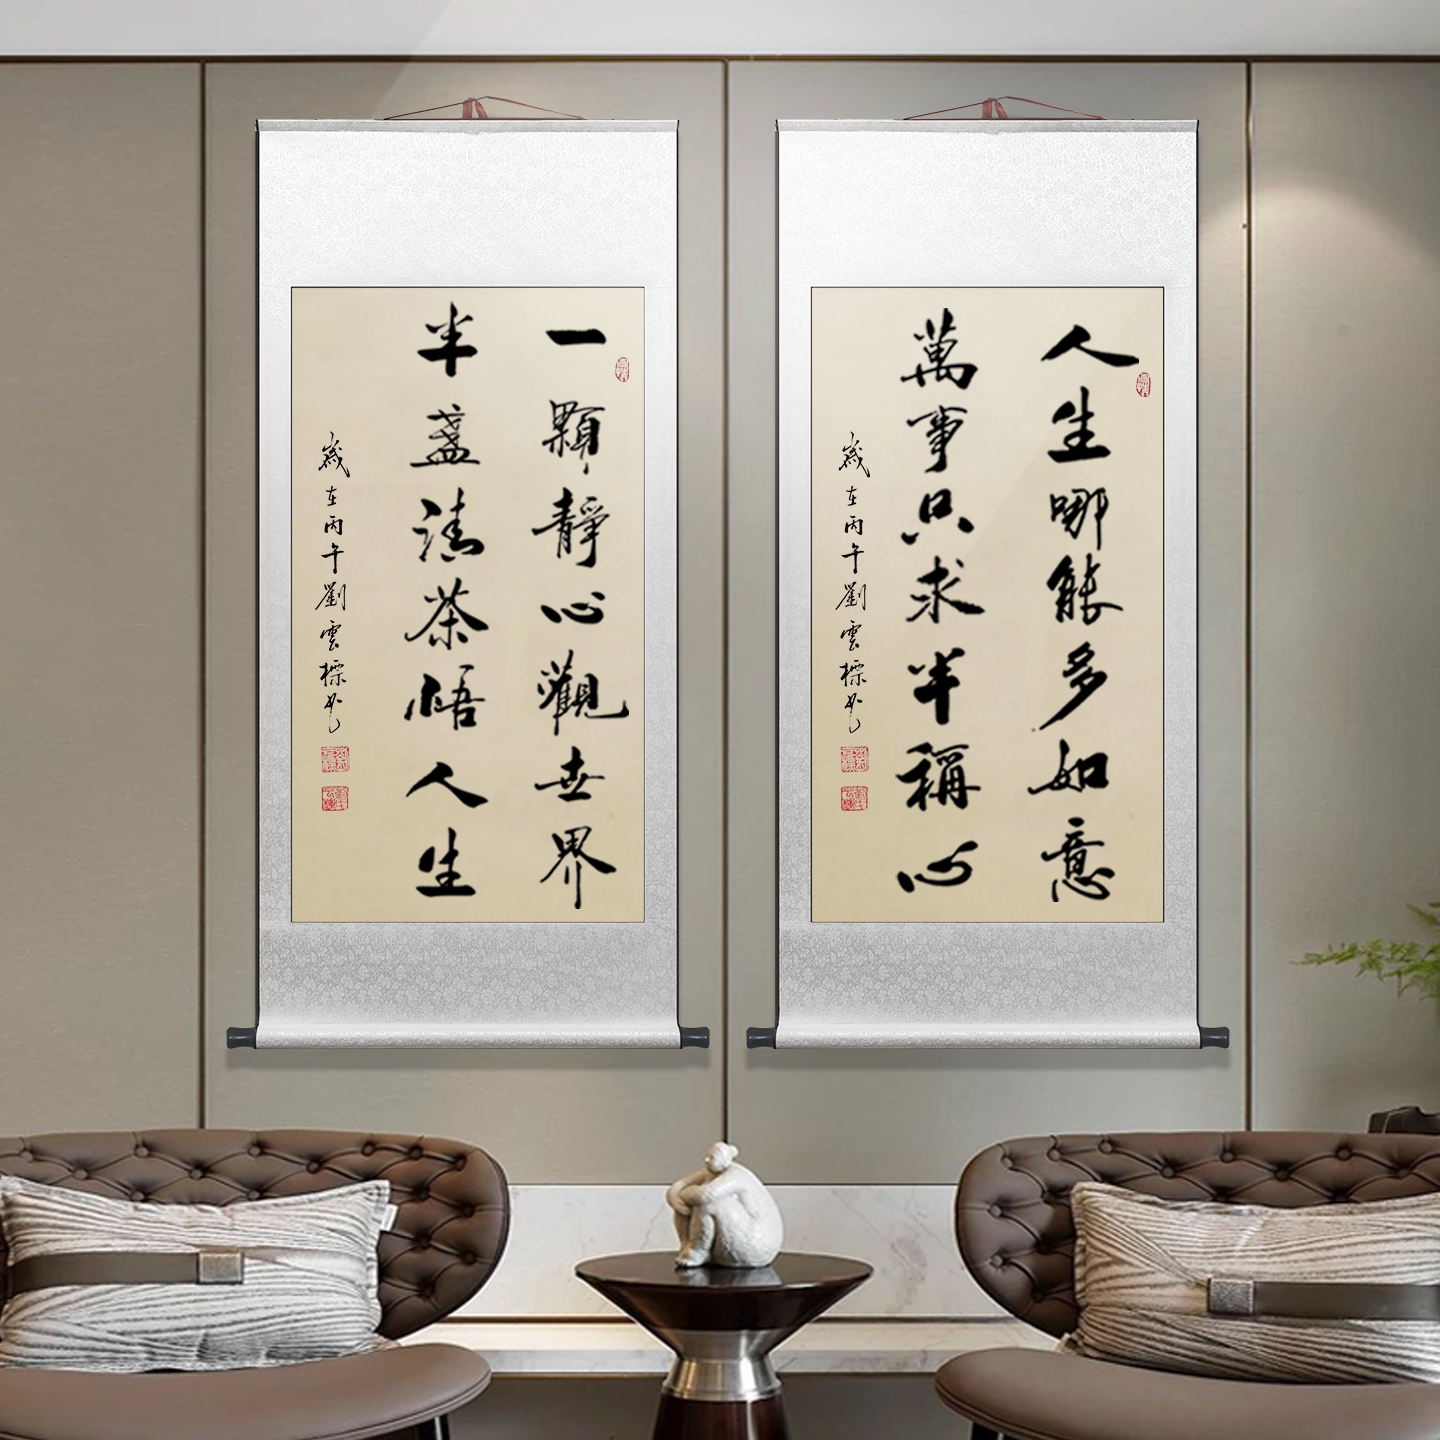 人生哪能多如意
萬事只求半稱心
歲在丙午劉雲標書
一顆靜心觀世界
半盞清茶悟人生
歲在丙午劉雲標書